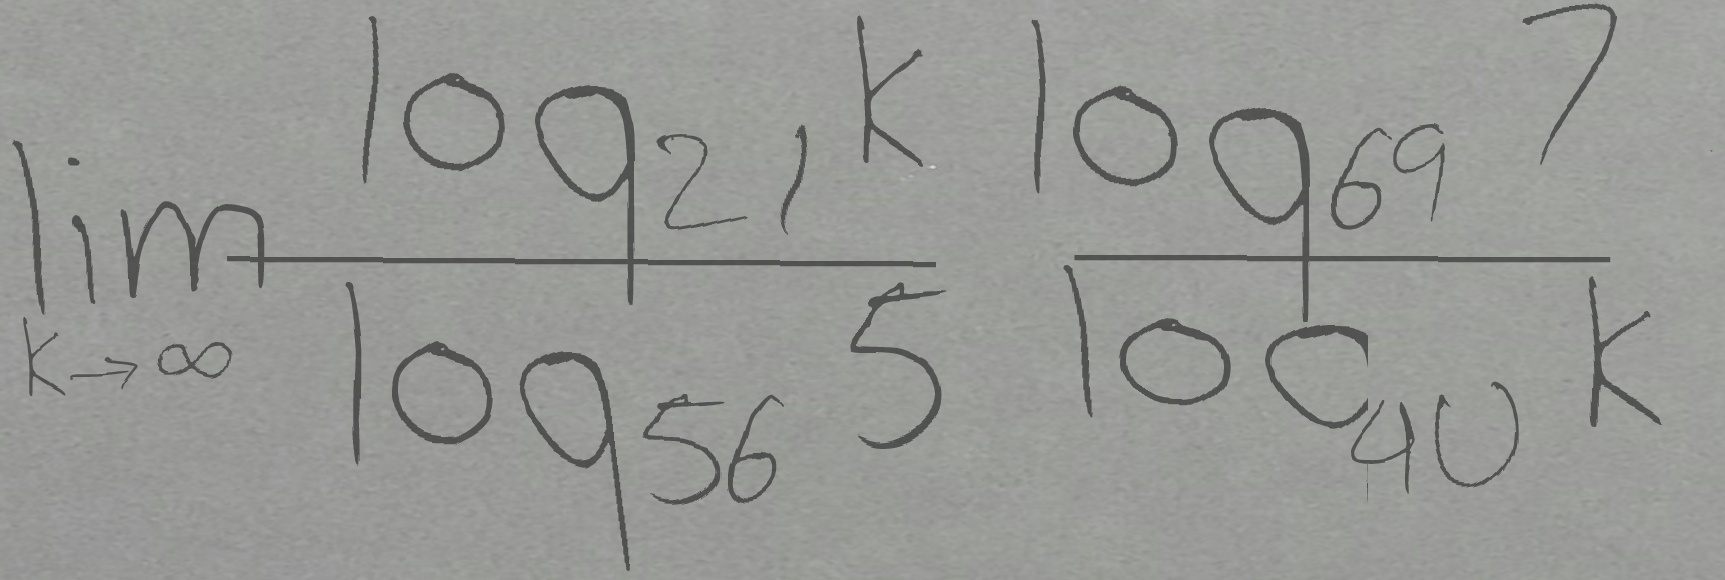 \lim_{k \to \infty} \frac{\log_{21} k}{\log_{56} 5} \frac{\log_{69} 7}{\log_{40} k}